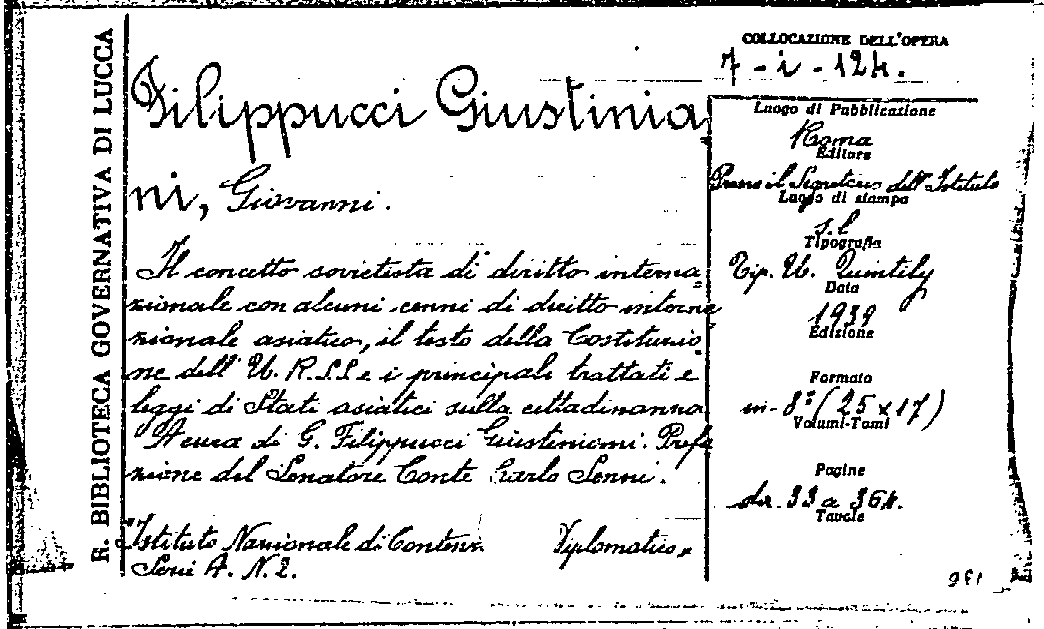 R. BIBLIOTECA GOVERNATIVA DI LUCCA
Filippucci Giustinia
ni, Giovanni.
Il concetto sovietista di diritto interna
zionale con alcuni cenni di diritto interna
zionale asiatico, il testo della Costituzio
ne dell' U.R.S.S. e i principali trattati e
leggi di Stati asiatici sulla cittadinanza
A cura di G. Filippucci Giustiniani. Prefa
zione del Senatore Conte Carlo Senni.
Istituto Nazionale di Diplomatico,
Serie A. N. 2.
COLLOCAZIONE DELL'OPERA
7 - i - 124.
Luogo di Pubblicazione
Roma
Editore
Presso il Segretario dell'Istituto
Luogo di stampa
s.l
Tipografia
Tip. U. Quintily
Data
1939
Edizione
Formato
in-8° (25 x 17)
Volumi-Tomi
Pagine
da 33 a 364.
Tavole